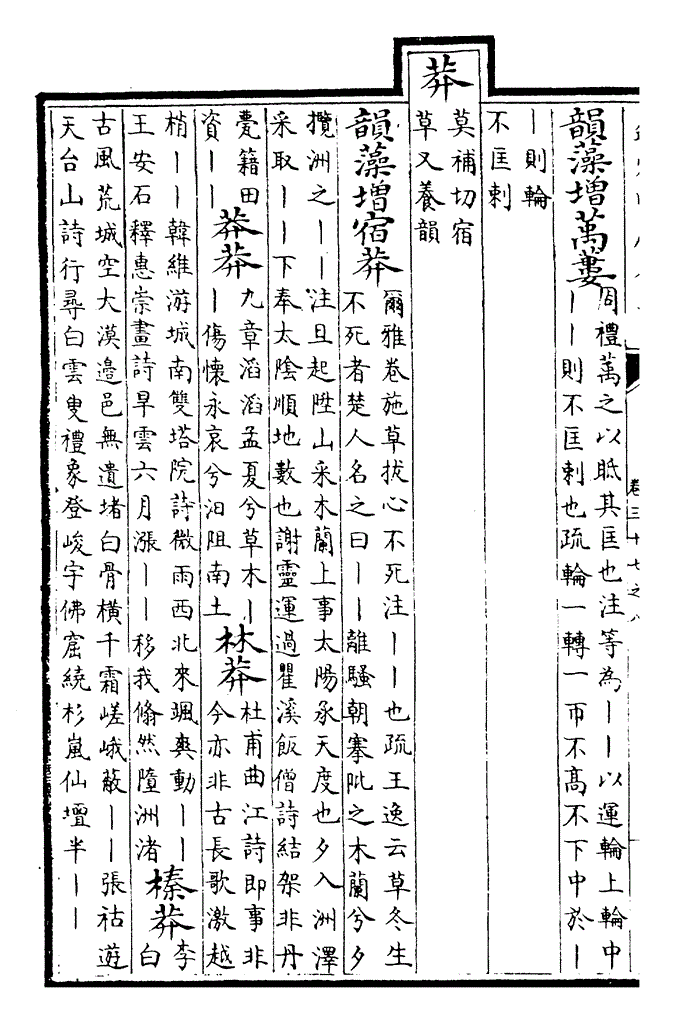 卷三十七之
韻藻增萬蔞
周禮萬之以眡其匡也注等為——以運輪上輪中
——則不匡剌也疏輪一轉一帀不高不下中於—
—則輪
不匡剌
莽
莫補切宿
草又養韻
韻藻增宿莽
爾雅卷施草拔心不死注——也疏王逸云草冬生
不死者楚人名之曰——離騷朝搴阰之木蘭兮夕
攬洲之——注旦起陞山采木蘭上事太陽承天度也夕入洲澤
采取——下奉太陰順地數也謝靈運過瞿溪飯僧詩結架非丹
甍籍田
資——
莽莽
九章滔滔孟夏兮草木—
—傷懷永哀兮汨徂南土
林莽
杜甫曲江詩即事非
今亦非古長歌激越
梢——韓維游城南雙塔院詩微雨西北來颯爽動——
王安石釋惠崇畫詩旱雲六月漲——移我翛然墮洲渚
榛莽
李
白
古風荒城空大漠邉邑無遺堵白骨橫千霜嵯峨蔽——張祜遊
天台山詩行尋白雲叟禮象登峻宇佛窟繞杉嵐仙壇半——